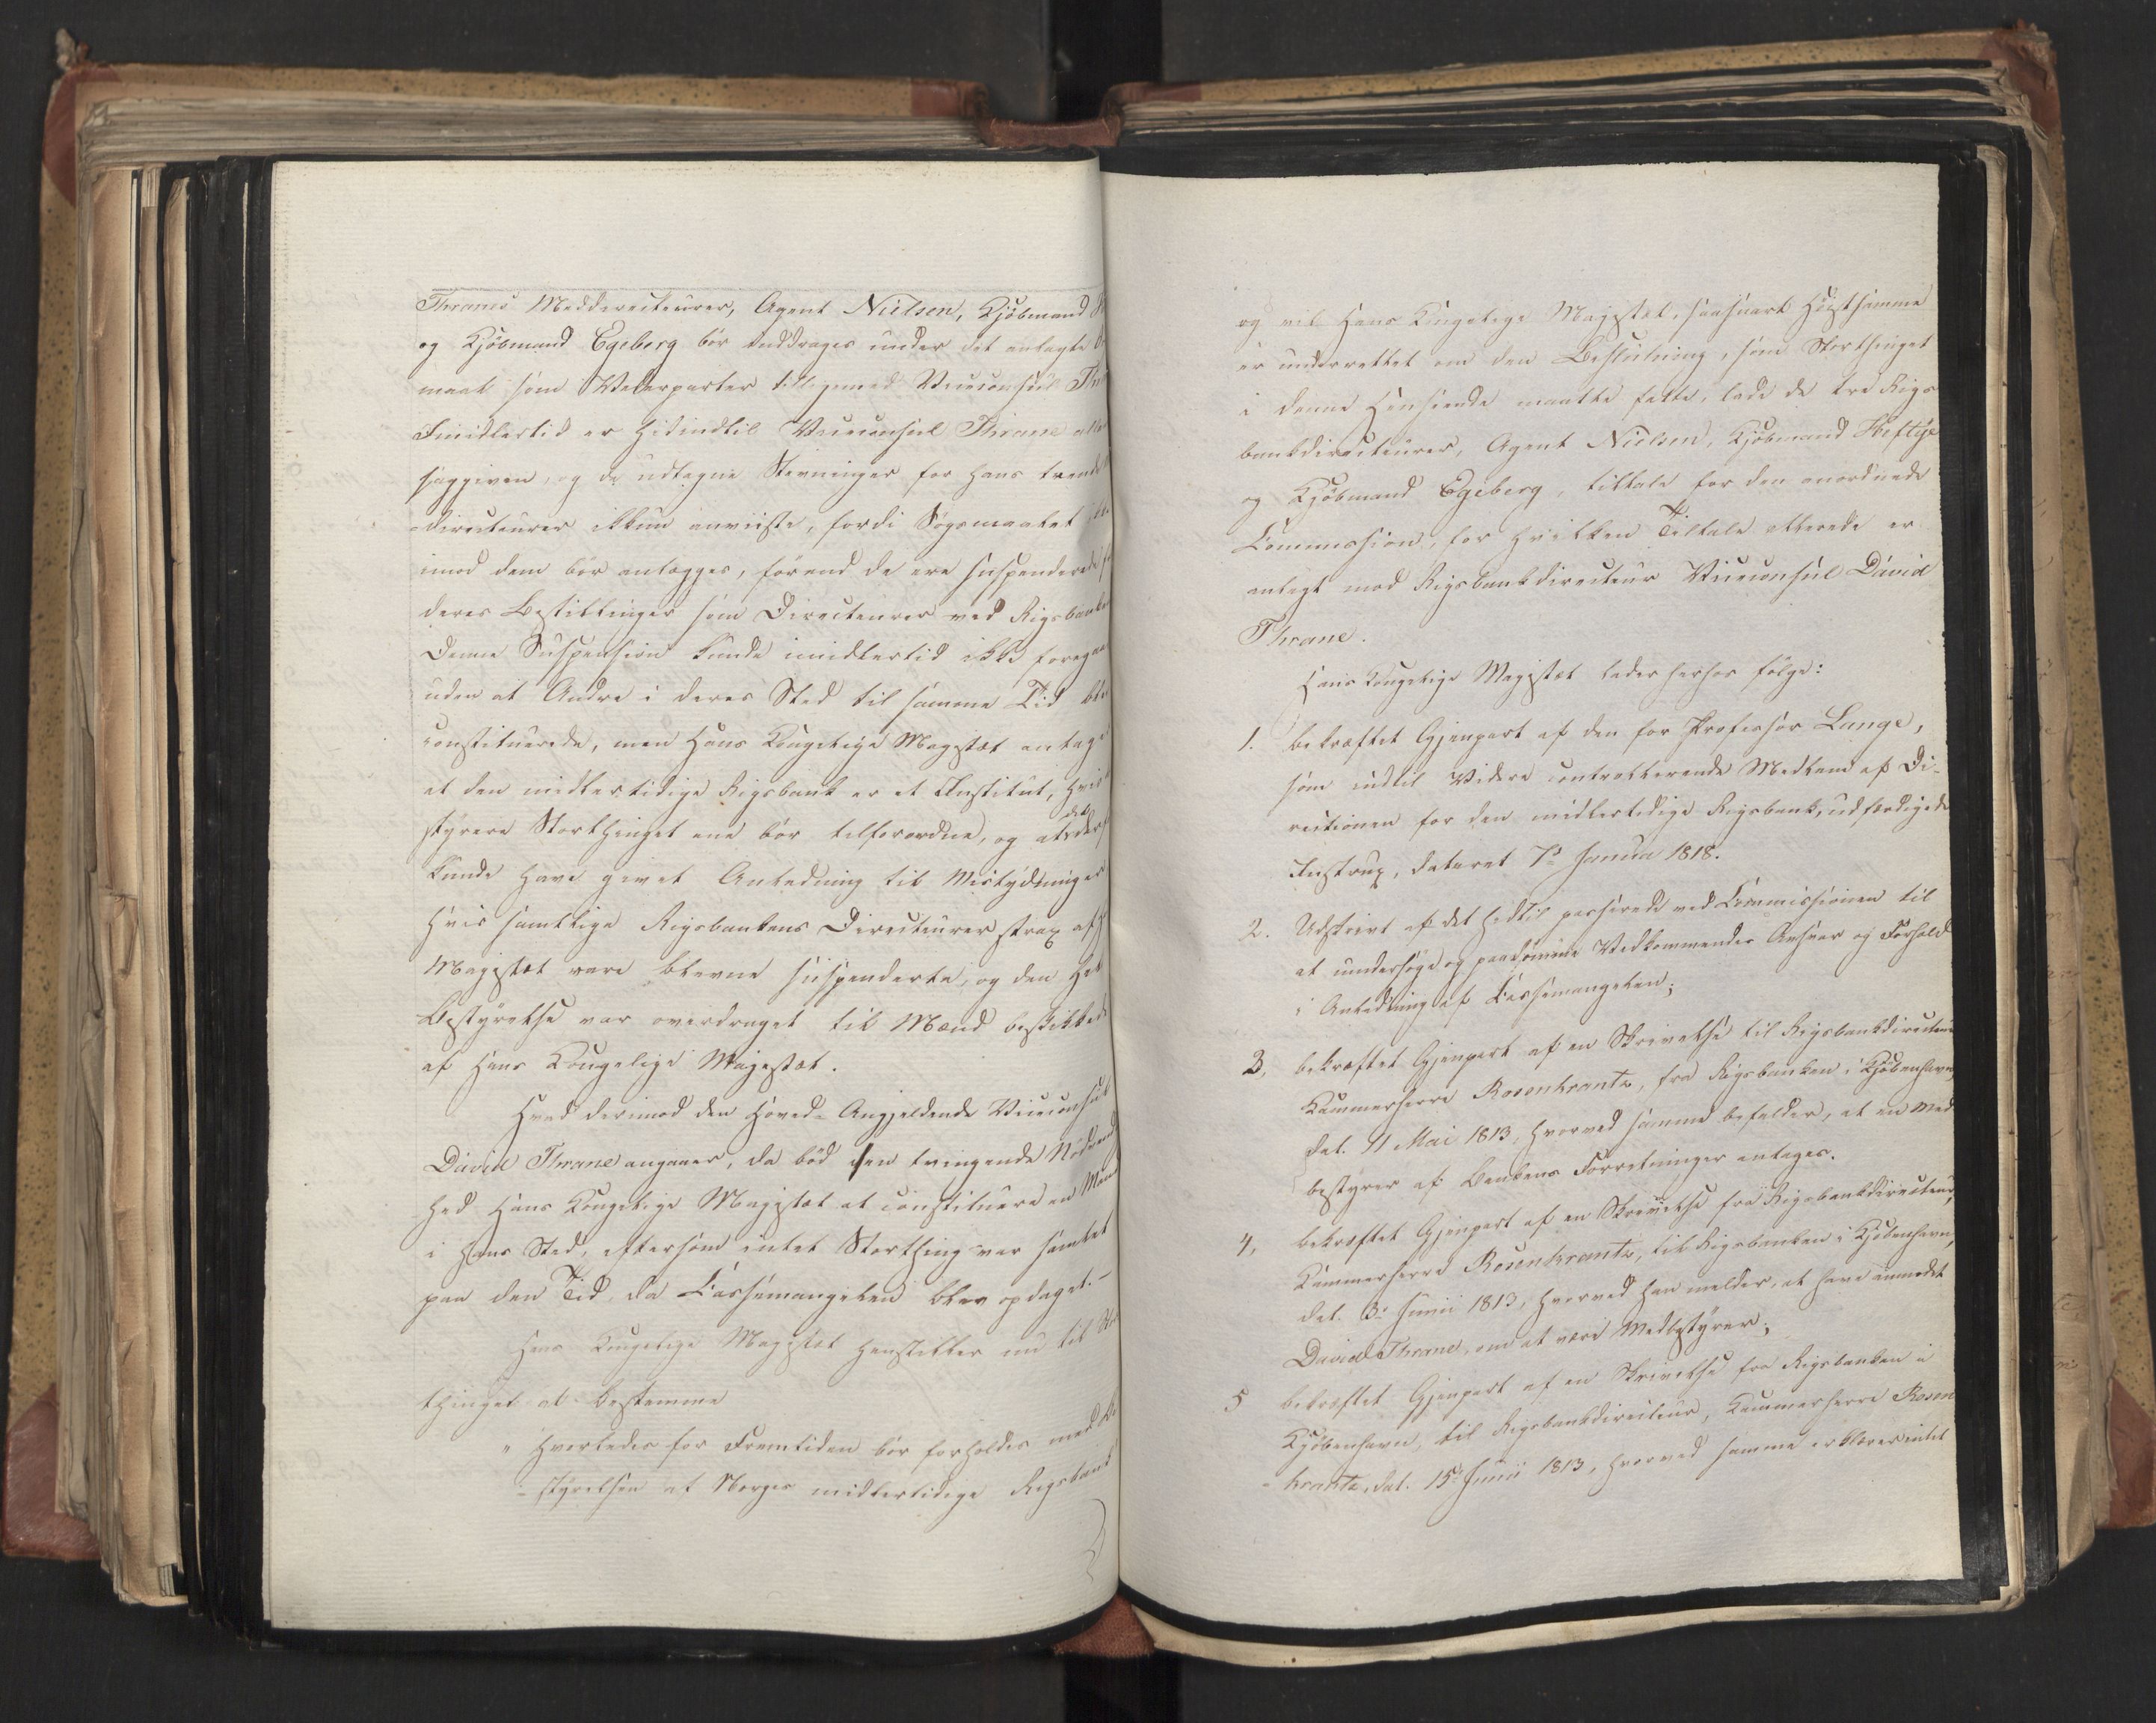 Thranes Meddirecteurer, Agent Nielsen, Kjøbmand
og Kjøbmand Egeberg bør inddrages under det anlagte
maal som Vederparter tilligemed Viceconsul Thr
Imidlertid er hidindtil Viceconsul Thrane alle
saggiven, og de udtagne Stevninger for hans trende
directeurer ikkun anviiste, fordi Søgsmaalet
imod dem bør anlægges, førend de ere suspenderede
deres Bestillinger som Directeurer ved Rigsbanken
Denne Suspension kunde imidlertid ikke foregaae
uden at Andre i deres Sted til samme Tid blev
constituerede, men Hans Kongelige Majestæt antage
at den midlertidige Rigsbank er et Institut, hvis
styrere Storthinget ene bør tilforordne, og at det
kunde have givet Anledning til Mistydninger
hvis samtlige Rigsbankens Directeurer strax af H
Majestæt vare blevne suspenderte, og den hel
Bestyrelse var overdraget til Mænd beskikkede
af Hans Kongelige Majestæt.
Hvad derimod den Hoved-Angjeldende Viceconsul
David Thrane angaaer, da bød den tvingende Nødvend
hed Hans Kongelige Majestæt at constituere en Mand
i hans Sted, eftersom intet Storthing var samlet
paa den Tid, da Cassemangelen blev opdaget.-
Hans Kongelige Majestæt henstiller nu til Stor
thinget at bestemme
" hvorledes for Fremtiden bør forholdes med Be
- styrelsen af Norges midlertidige Rigsbank
og vil Hans Kongelige Majestæt, saasnart Høistsamme
er underrettet om den Beslutning, som Storthinget
i denne Henseende maatte fatte, lade de tre Rigs
bankdirecteurer, Agent Nielsen, Kjøbmand Heftije
og Kjøbmand Egeberg, tiltale for den anordnede
Commission, for hvilken Tiltale allerede er
anlagt mod Rigsbankdirecteur Viceconsul David
Thrane.
Hans Kongelige Majestæt lader herhos følge:
1. bekræftet Gjenpart af den for Professor Lange,
som indtil Videre controllerende Medlem af Di-
rectionen for den midlertidige Rigsbank, udfærdigede
Instrux, dateret 7de Janua 1818.
2. Udskrivt af det hidtil passerede ved Commissionen til
at undersøge og paadømme Vedkommendes Ansvar og Forhold
i Anledning af Cassemangelen;
3, bekræftet Gjenpart af en Skrivelse til Rigsbankdirecteur
Kammerherre Rosenkrantz, fra Rigsbanken i Kjøbenhavn,
dat. 11 Mai 1813, hvorved samme befalder, at en Med
bestyrer af Bankens Forretninger antages.
4, bekræftet Gjenpart af en Skrivelse fra Rigsbankdirecteur,
Kammerherre Rosenkrantz, til Rigsbanken i Kjøbenhavn,
dat. 3. Junii 1813, hvorved han melder, at have anmodet
David Thrane, om at være Medbestyrer;
5 bekræftet Gjenpart af en Skrivelse fra Rigsbanken i
Kjøbenhavn, til Rigsbankdirecteur, Kammerherre Rosen
- krantz, dat. 15de Junii 1813, hvorved samme erklærer intet